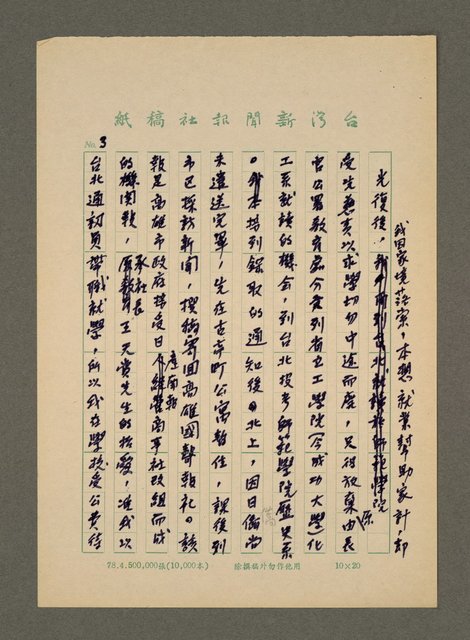 台灣新聞報社稿紙
No. 3
光復後,我因家境落寞,本想就業幫助家計,却
受先慈責以求學切勿中途而廢,只得放棄由原長
官公署教育處分發到省立工學院(今成功大學)化
工系就讀的機會,到台北投考師範學院歷史系
。我本接到錄取的通知後北上,因日僑尚
未遣送完畢,先在古亭町公寓暫住,課後到
市已採訪新聞,撰稿寄回高雄國聲報社。該
報是高雄市政府接受日產南報及經營商事社改組而成
的機關報,承社長王天賞先生的抬愛,准我以
台北通訊員帶職就學,所以我在學校受公費待
78.4.500,000張(10,000本)
除撰稿外勿作他用
10×20